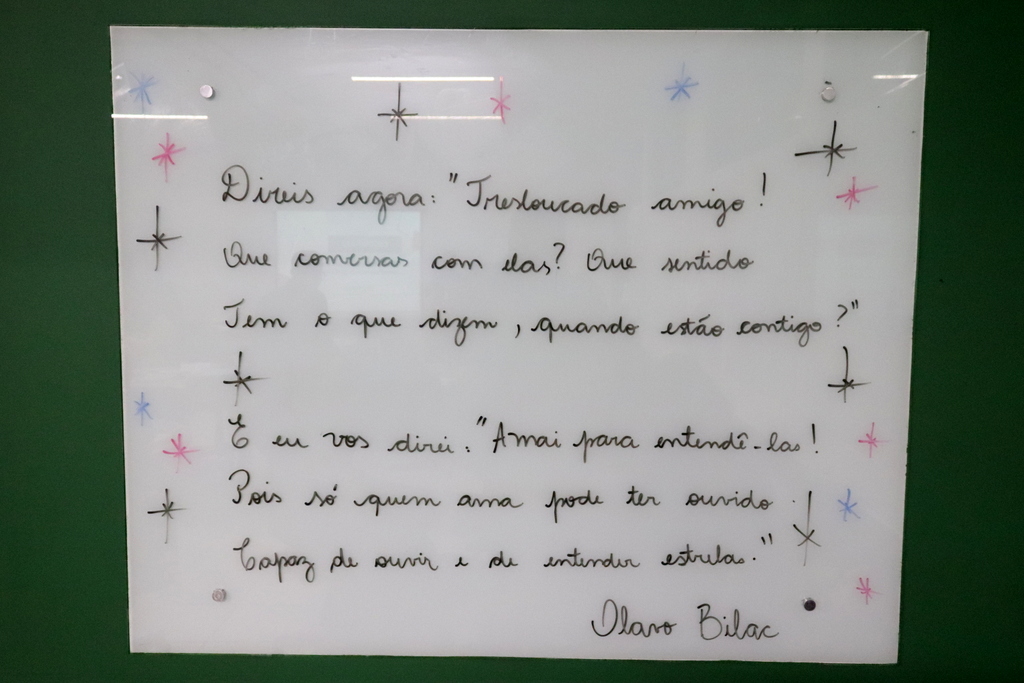 Direis agora: "Tresloucado amigo!
Que conversas com elas? Que sentido
Tem o que dizem, quando estão contigo?"
E eu vos direi: "Amai para entendê-las!
Pois só quem ama pode ter ouvido
Capaz de ouvir e de entender estrelas."
Olavo Bilac